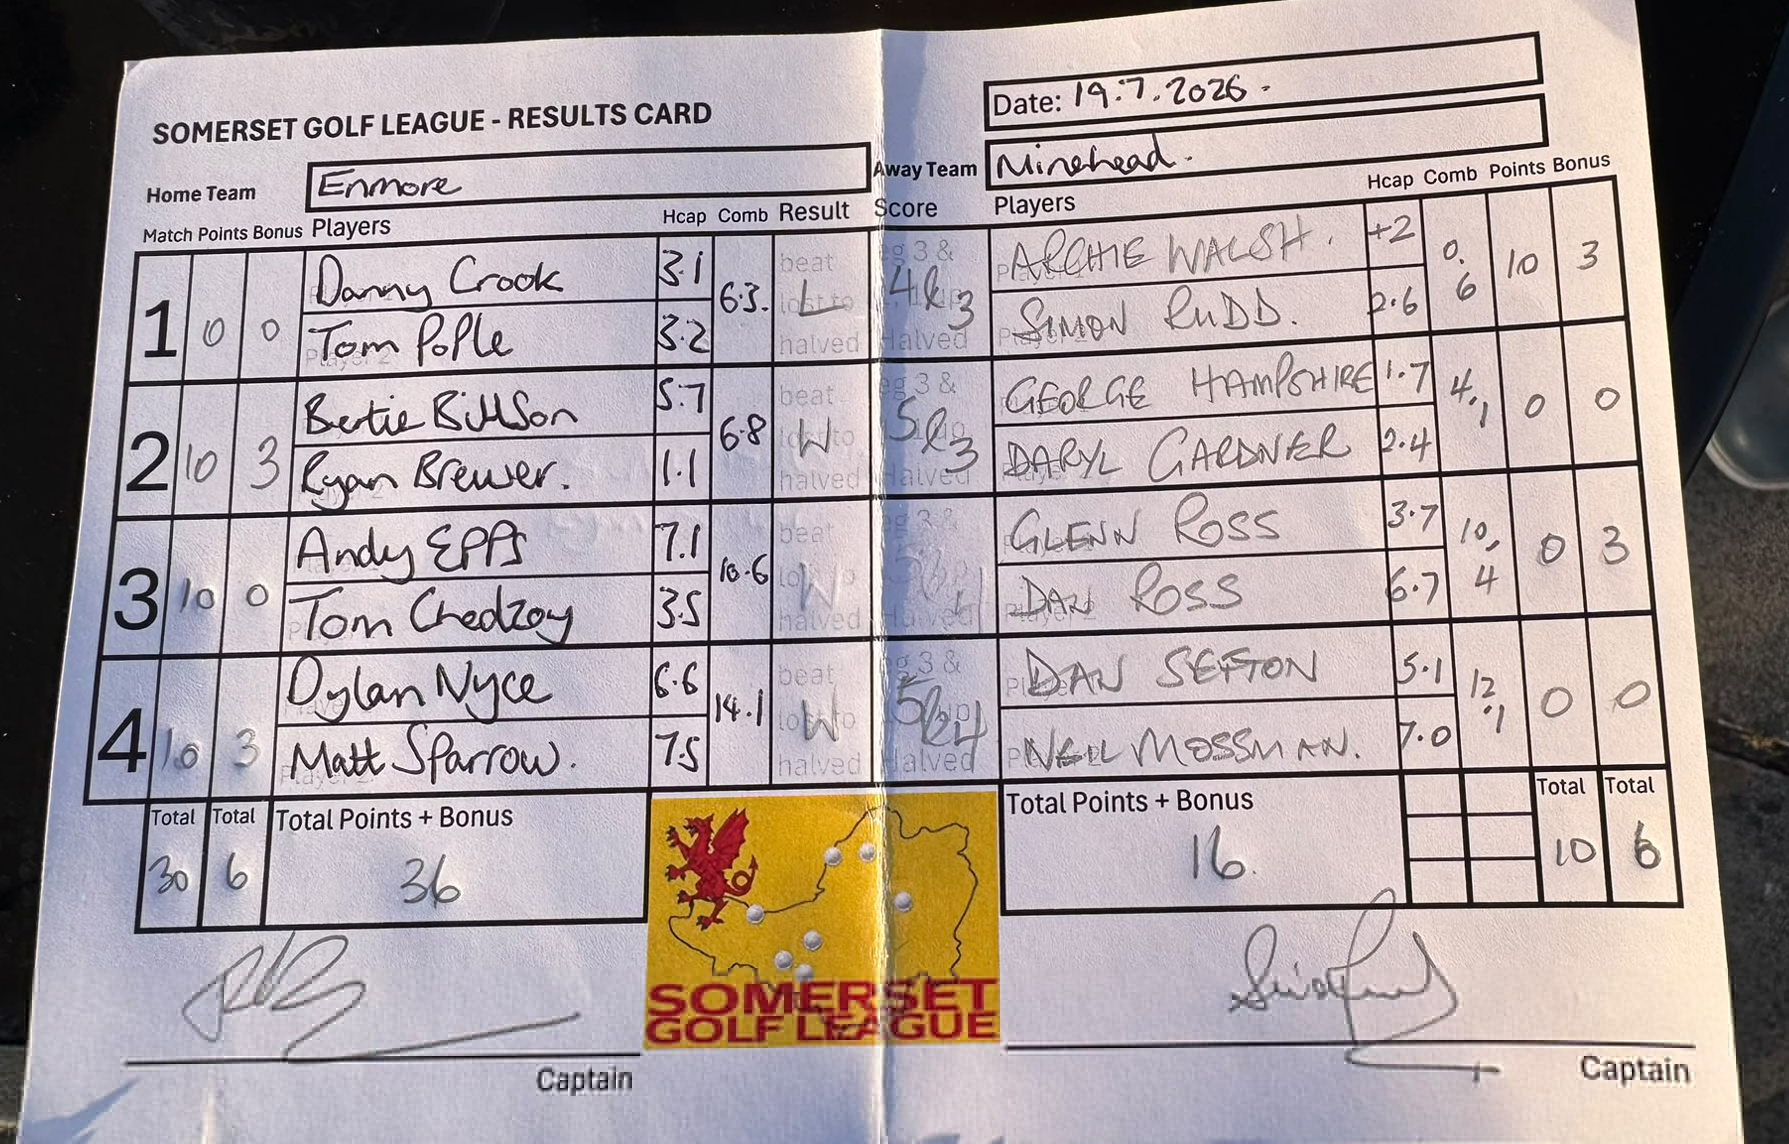 SOMERSET GOLF LEAGUE - RESULTS CARD
Date: 19.7.2026.
Home Team Enmore Away Team Minehead.
Match Points Bonus Players Hcap Comb Result Score Players Hcap Comb Points Bonus
1 10 0 Danny Crook 3.1 6.3. beat eg 3 & ARCHIE WALSH. +2 0.6 10 3
Tom Pople 3.2 L lost to 4&3 SIMON RUDD. 2.6
halved Halved
2 10 3 Bertie Billson 5.7 6.8 beat eg 3 & GEORGE HAMPSHIRE 1.7 4.1 0 0
Ryan Brewer. 1.1 W 5&3 DARYL GARDNER 2.4
halved Halved
3 10 0 Andy Epps 7.1 10.6 beat GLENN ROSS 3.7 10.4 0 3
Tom Chedzoy 3.5 W DAN ROSS 6.7
halved Halved
4 10 3 Dylan Nyce 6.6 14.1 beat eg 3 & DAN SEFTON 5.1 12.1 0 0
Matt Sparrow. 7.5 W lost to 5&4 NEIL MOSSMAN. 7.0
halved Halved
Total Total Total Points + Bonus Total Points + Bonus Total Total
30 6 36 16. 10 6
SOMERSET
GOLF LEAGUE
Captain Captain